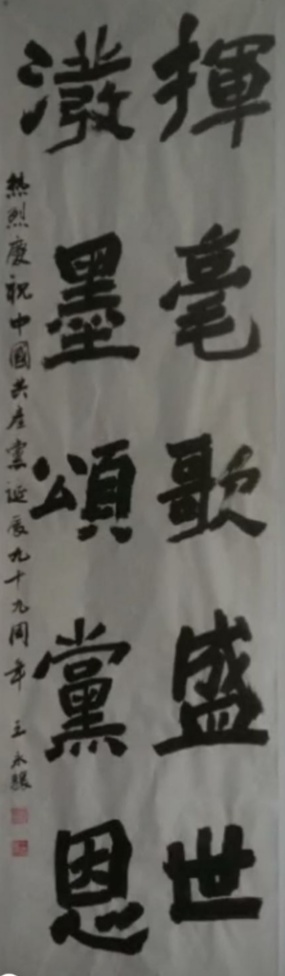 揮毫歌盛世
潑墨頌黨恩
熱烈慶祝中國共產黨延辰九十九周年 王永